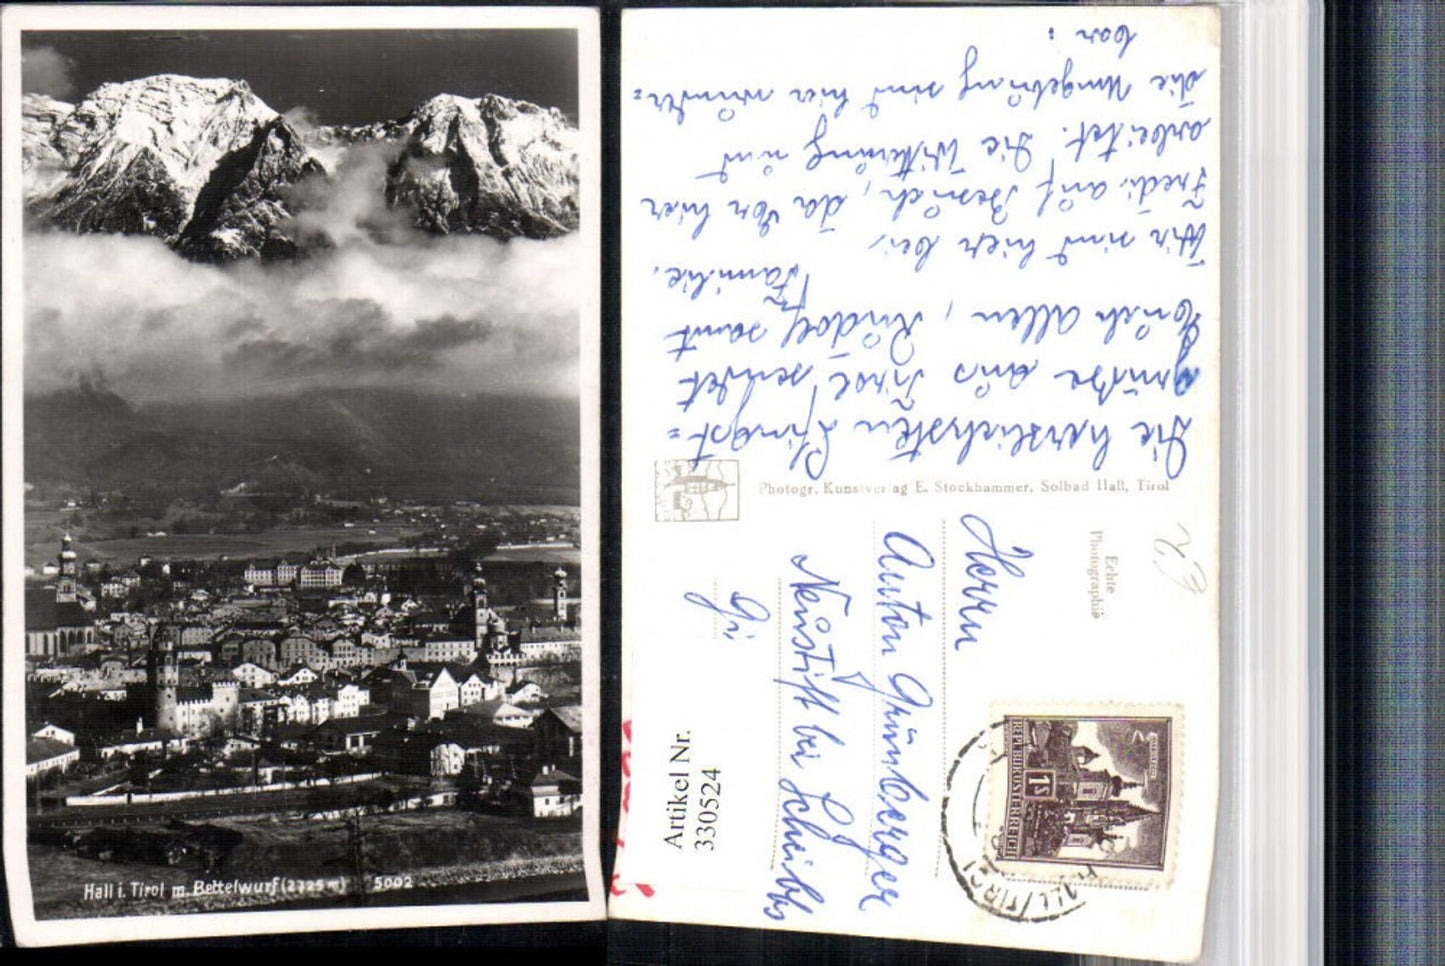 Hall i. Tirol m. Bettelwurf (2725 m) 5002
Die herzlichsten Pfingst=
grüße aus Tirol sendet
Euch allen, Rudolf samt
Familie.
Wir sind hier bei
Fredi auf Besuch, da er hier
arbeitet. Die Witterung und
die Umgebung sind hier wunder=
bar.
Photogr. Kunstverlag E. Stockhammer, Solbad Hall, Tirol
Echte
Photographie
Herrn
Anton Grünberger
Neustift bei Scheibbs
REPUBLIK ÖSTERREICH
1 S
HALL (TIROL)
Artikel Nr.
330524